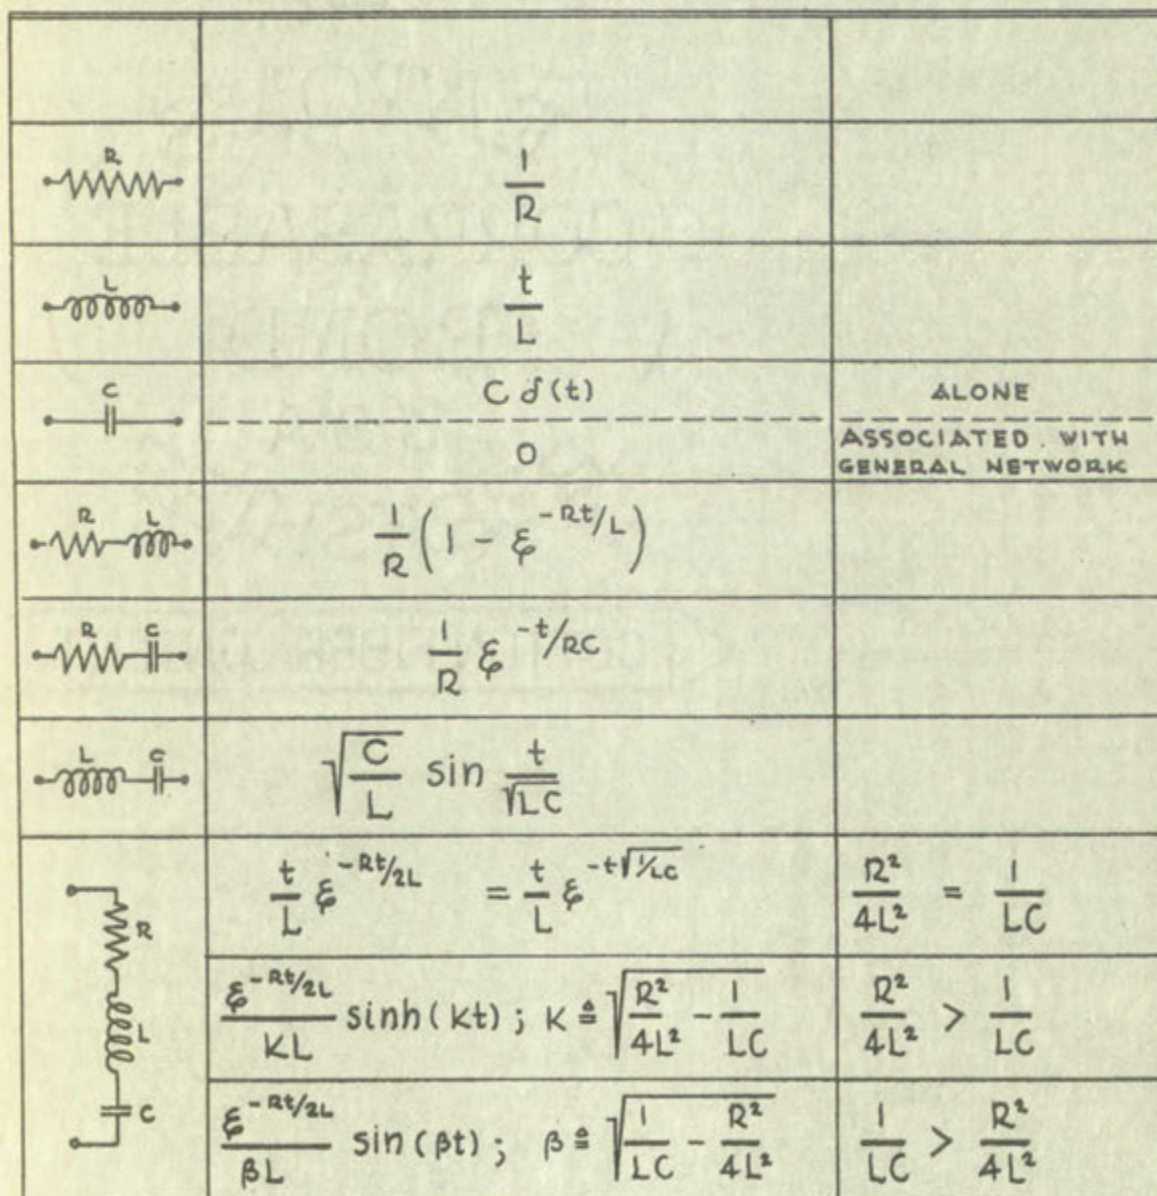 R
1/R
L
t/L
C
C δ(t)
ALONE
O
ASSOCIATED. WITH
GENERAL NETWORK
R L
1/R (1 - ε^-Rt/L)
R C
1/R ε^-t/RC
L C
√(C/L) sin t/√LC
R
L
C
t/L ε^-Rt/2L = t/L ε^-t√(1/LC)
R²/4L² = 1/LC
ε^-Rt/2L / KL sinh(kt); K ≜ √(R²/4L² - 1/LC)
R²/4L² > 1/LC
ε^-Rt/2L / βL sin(βt); β ≜ √(1/LC - R²/4L²)
1/LC > R²/4L²